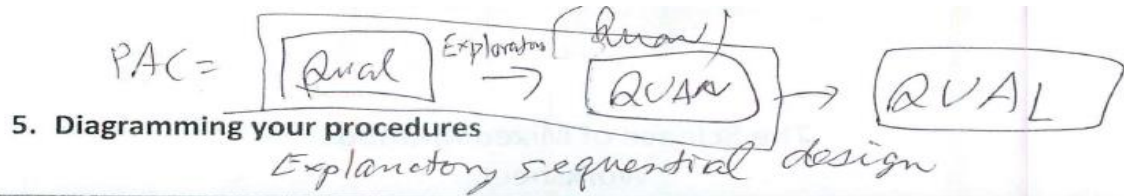 Exploratory (Quan)
PAC = Qual → QUAN → QUAL
5. Diagramming your procedures
Explanatory sequential design